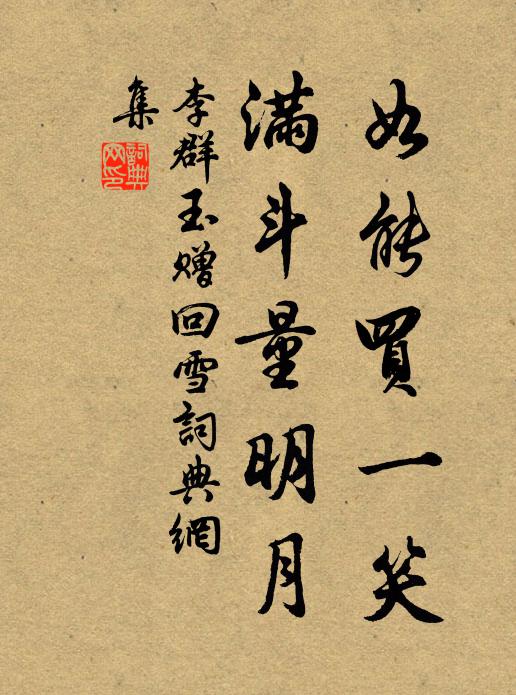 如能買一笑
滿斗量明月
李群玉贈回雪詞典網
集
詞典網印